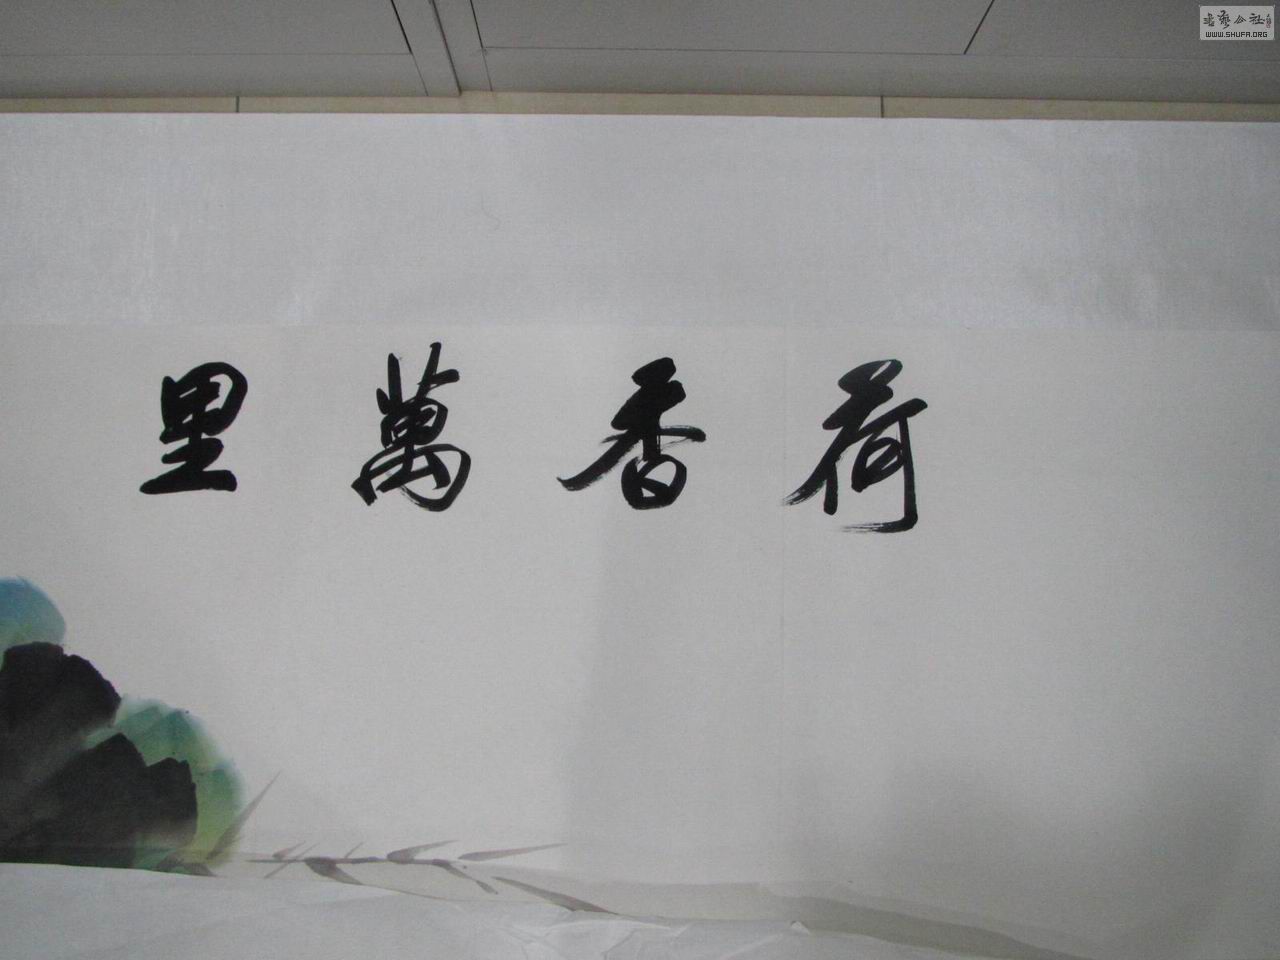 荷香萬里
书艺公社
WWW.SHUFA.ORG